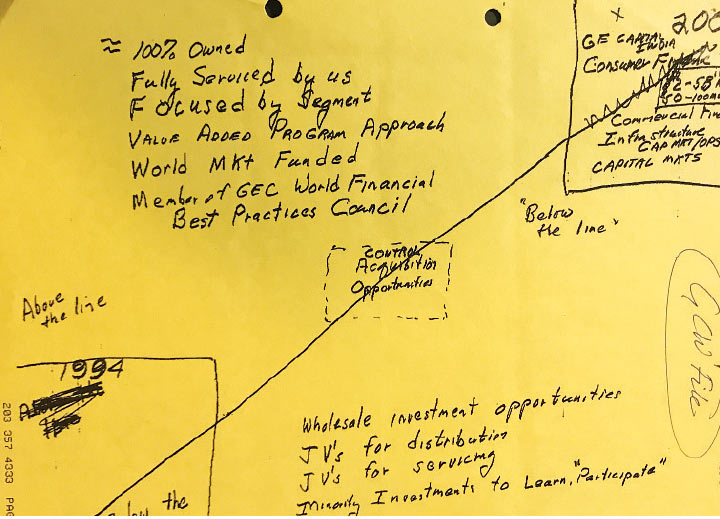 ≈ 100% Owned
Fully Serviced by us
Focused by Segment
VALUE ADDED PROGRAM APPROACH
World Mkt Funded
Member of GEC World Financial
Best Practices Council
X
200
GE CAPITAL
INDIA
Consumer
$2-5B
50-100
Commercial Fin
Infrastructure
CAP MKT/OPS
CAPITAL MKTS
"Below
the line"
CONTROL
Acquisition
Opportunities
Above
the line
1994
GCW File
Wholesale investment opportunities
JV's for distribution
JV's for servicing
Minority Investments to Learn, "Participate"
low the
203 357 4333 PAG